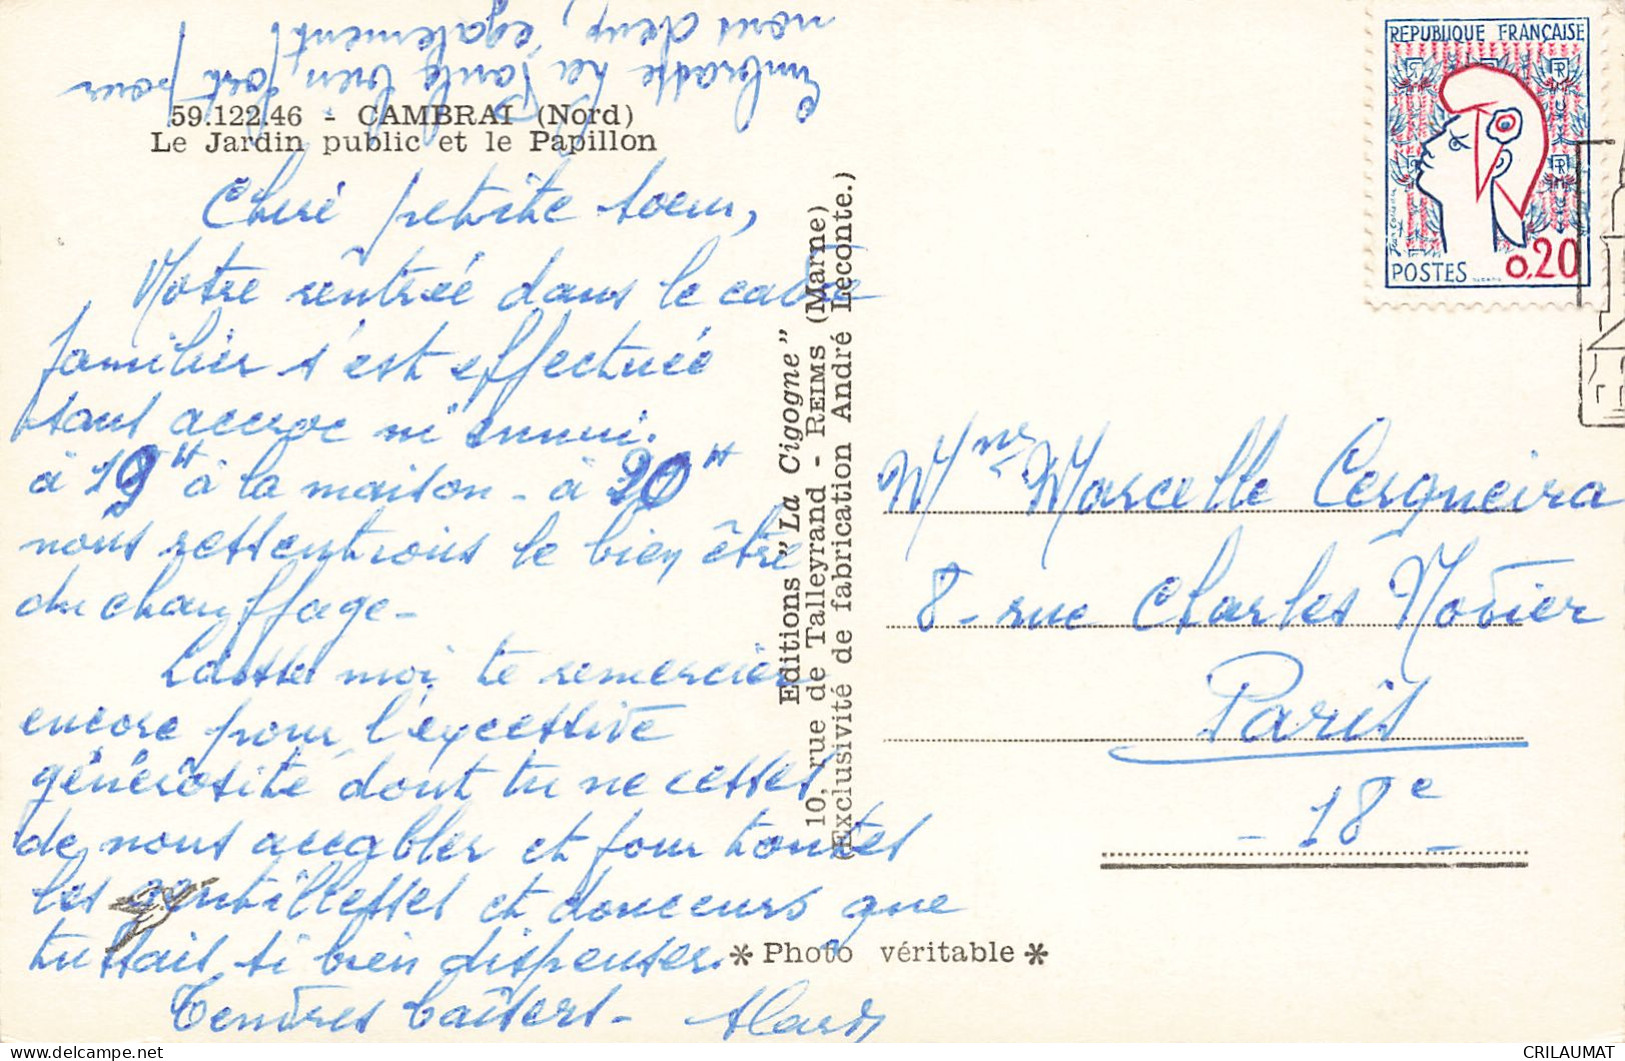 59.122.46 - CAMBRAI (Nord)
Le Jardin public et le Papillon
Chère petite soeur,
Notre rentrée dans le cadre
familier s'est effectuée
sans accroc ni ennui.
à 19H à la maison - à 20H
nous ressentions le bien être
du chauffage -
Laisse moi te remercier
encore pour l'excessive
générosité dont tu ne cesses
de nous accabler et pour toutes
les gentillesses et douceurs que
tu sais si bien dispenser.
Tendres baisers -
Embrasse Paule bien fort pour
nous deux, également !
Editions "La Cigogne"
10, rue de Talleyrand - REIMS (Marne)
(Exclusivité de fabrication André Leconte.)
* Photo véritable *
REPUBLIQUE FRANÇAISE
POSTES 0,20
Mme Marcelle Cerqueira
8 - rue Charles Nodier
Paris
- 18e -
CRILAUMAT